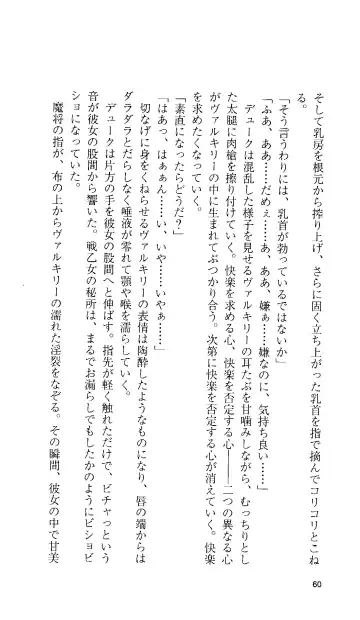 そして乳房を根元から搾り上げ、さらに固く立ち上がった乳首を指で摘んでコリコリとこね
る。
「そう言うわりには、乳首が勃っているではないか」
「ふあ、ああ……だめぇ……あ、ああ、嫌ぁ……嫌なのに、気持ち良い……」
デュークは混乱した様子を見せるヴァルキリーの耳たぶを甘噛みしながら、むっちりとし
た太腿に肉槍を擦り付けていく。快楽を求める心、快楽を否定する心――二つの異なる心
がヴァルキリーの中に生まれてぶつかり合う。次第に快楽を否定する心が消えていく。快楽
を求めたくなっていく。
「素直になったらどうだ?」
「はあっ、はぁぁん……い、いや……いやぁ……」
切なげに身をくねらせるヴァルキリーの表情は陶酔したようなものになり、唇の端からは
ダラダラとだらしなく唾液が零れて顎や喉を濡らしていく。
デュークは片方の手を彼女の股間へと伸ばす。指先が軽く触れただけで、ビチャっという
音が彼女の股間から響いた。戦乙女の秘所は、まるでお漏らしでもしたかのようにビショビ
ショになっていた。
魔将の指が、布の上からヴァルキリーの濡れた淫裂をなぞる。その瞬間、彼女の中で甘美
60